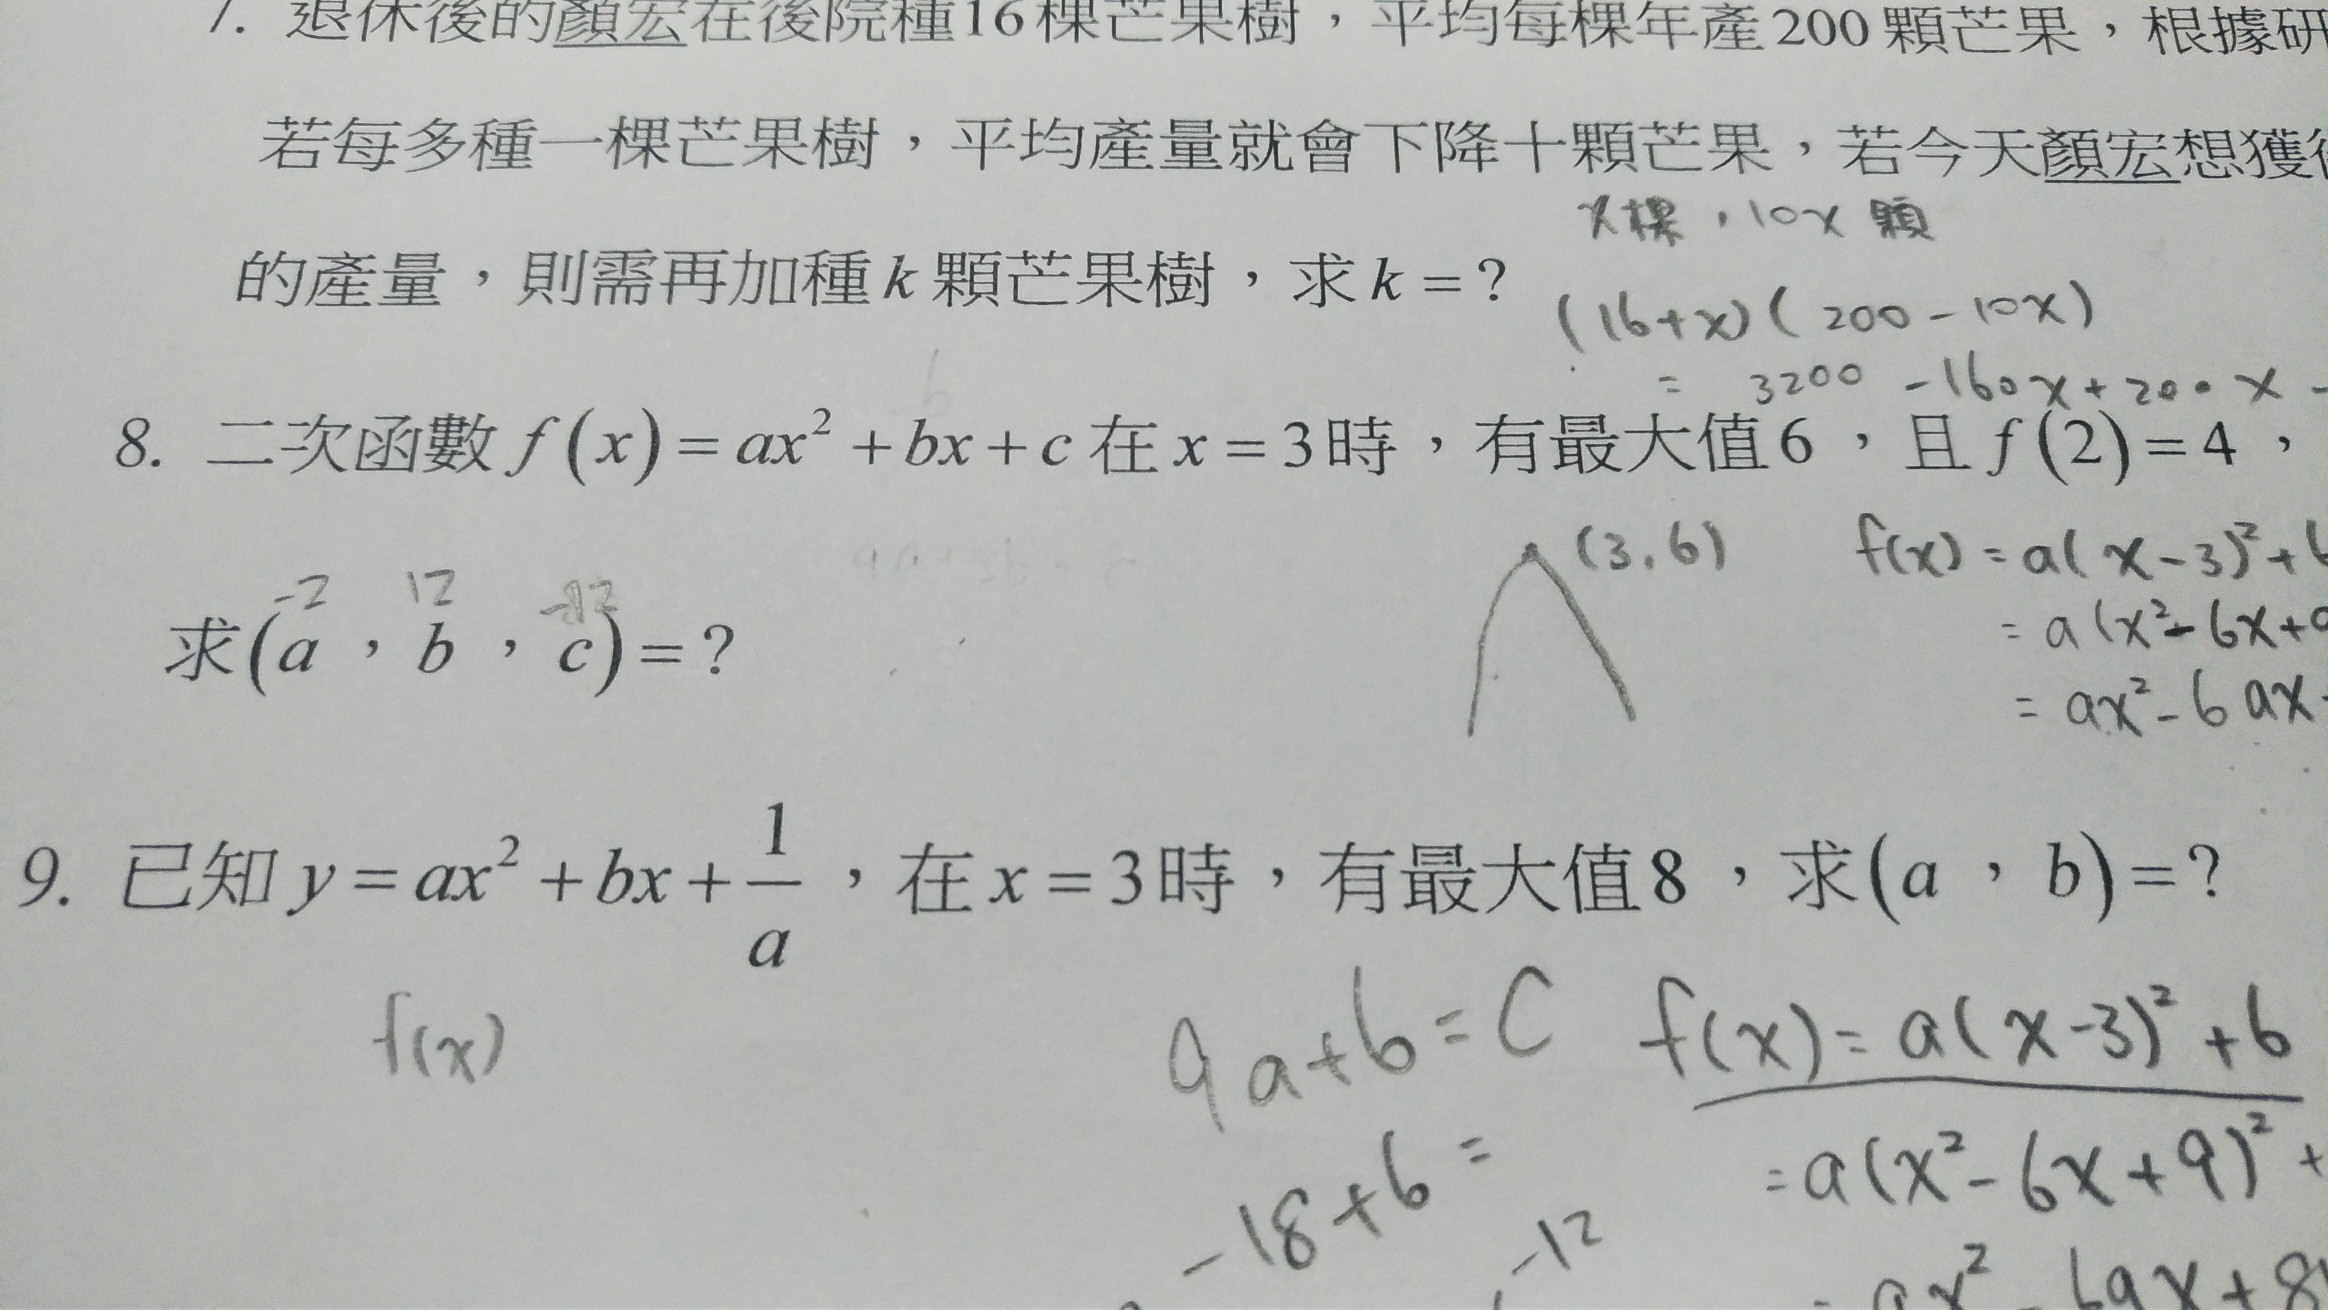 7. 退休後的顏宏在後院種16棵芒果樹，平均每棵年產200顆芒果，根據研
若每多種一棵芒果樹，平均產量就會下降十顆芒果，若今天顏宏想獲
x棵，10x顆
的產量，則需再加種k顆芒果樹，求k=?
(16+x)(200-10x)
= 3200 -160x+200x -
8. 二次函數 f(x)=ax²+bx+c 在 x=3時，有最大值6，且 f(2)=4，
(3,6)
f(x)=a(x-3)²+6
-2 12
求(a，b，c)=?
= a(x²-6x+9
= ax²-6ax
9. 已知 y=ax²+bx+1/a，在 x=3時，有最大值8，求(a，b)=?
f(x)
9a+6=C
f(x)=a(x-3)²+6
-18+6=
-12
=a(x²-6x+9)²+
= ax²-6ax+8